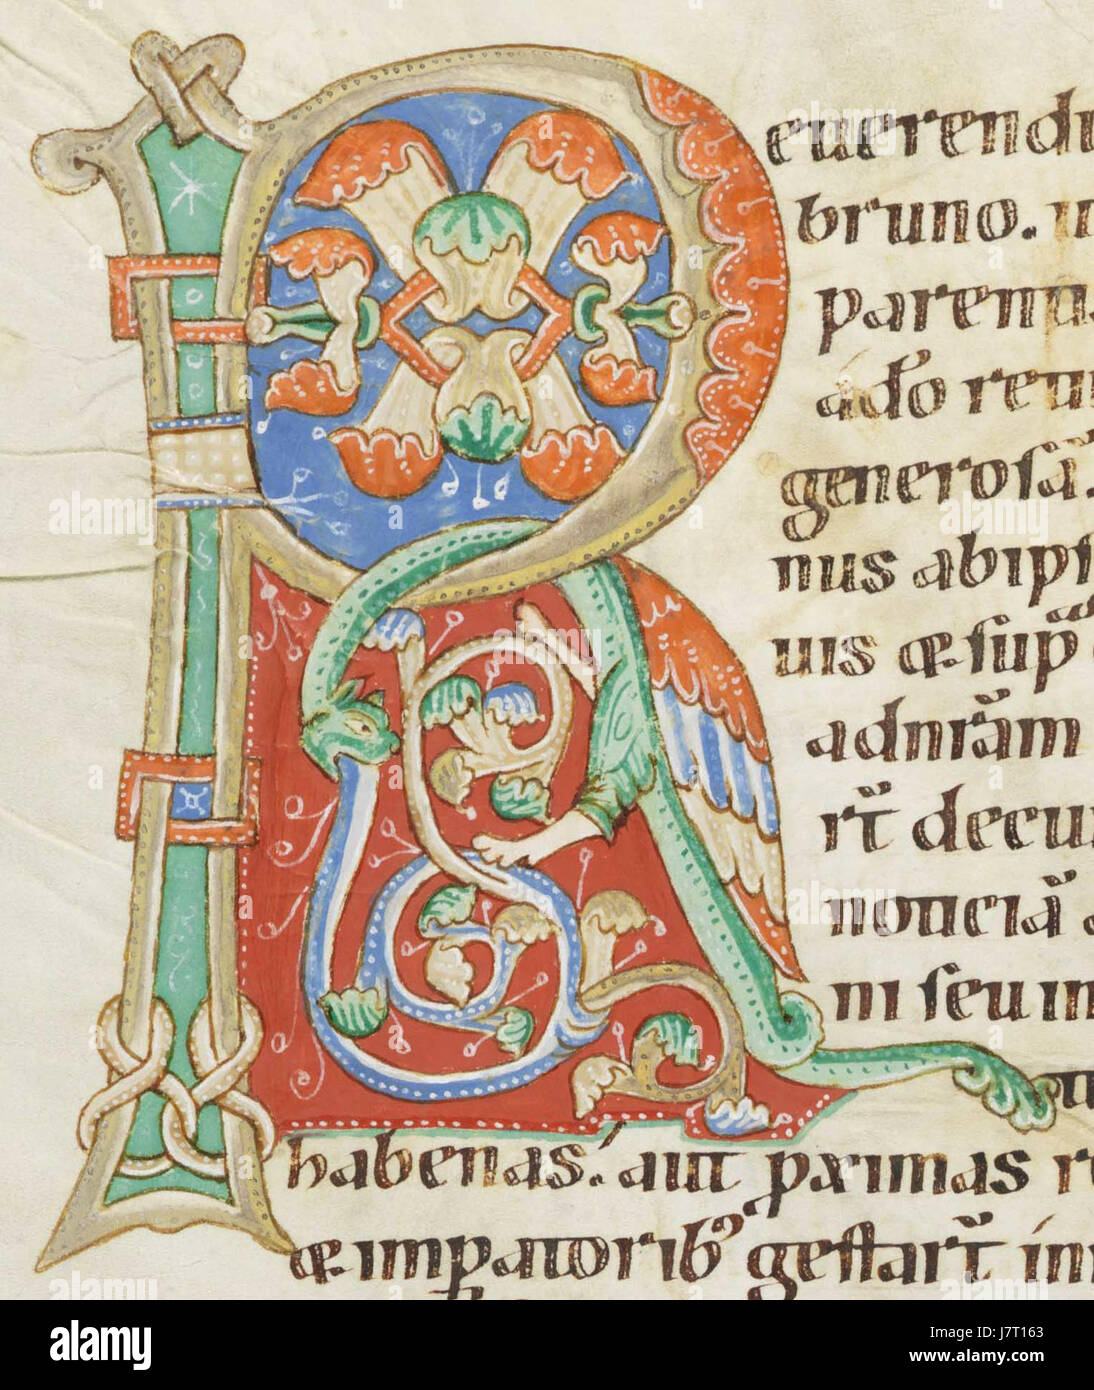 Reuerendi
bruno. in
parentu
ad͛o reui
generosā.
nus abipſ
uis æſup̄
adnirā̄m
rt̄ decur
noticiā a
ni ſeu in
habenas.́ aut proximas r
æimperatorib⁹ geſtart̄ in
alamy
Image ID: J7T163
www.alamy.com